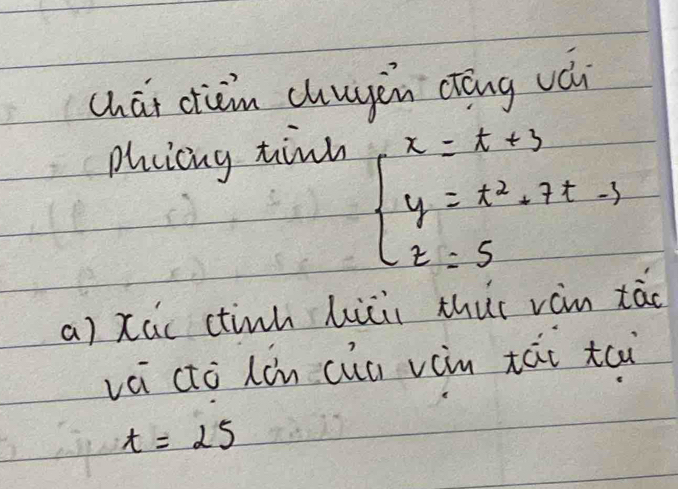 chất điểm chuyển động với
phương trình { x = t + 3
y = t² + 7t - 3
z = 5
a) Xác định biểu thức vận tốc
và độ lớn của vận tốc tại
t = 2s